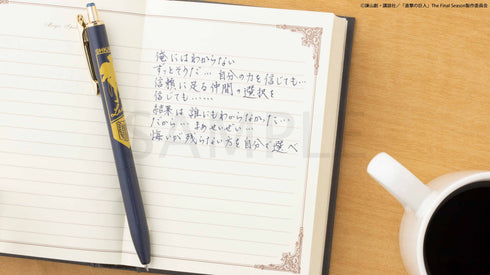 ©諫山創・講談社／「進撃の巨人」The Final Season製作委員会
俺にはわからない
ずっとそうだ…自分の力を信じても…
信頼に足る仲間の選択を
信じても……
結果は誰にもわからなかった…
だから…まぁせいぜい…
悔いが残らない方を自分で選べ
SAMPLE